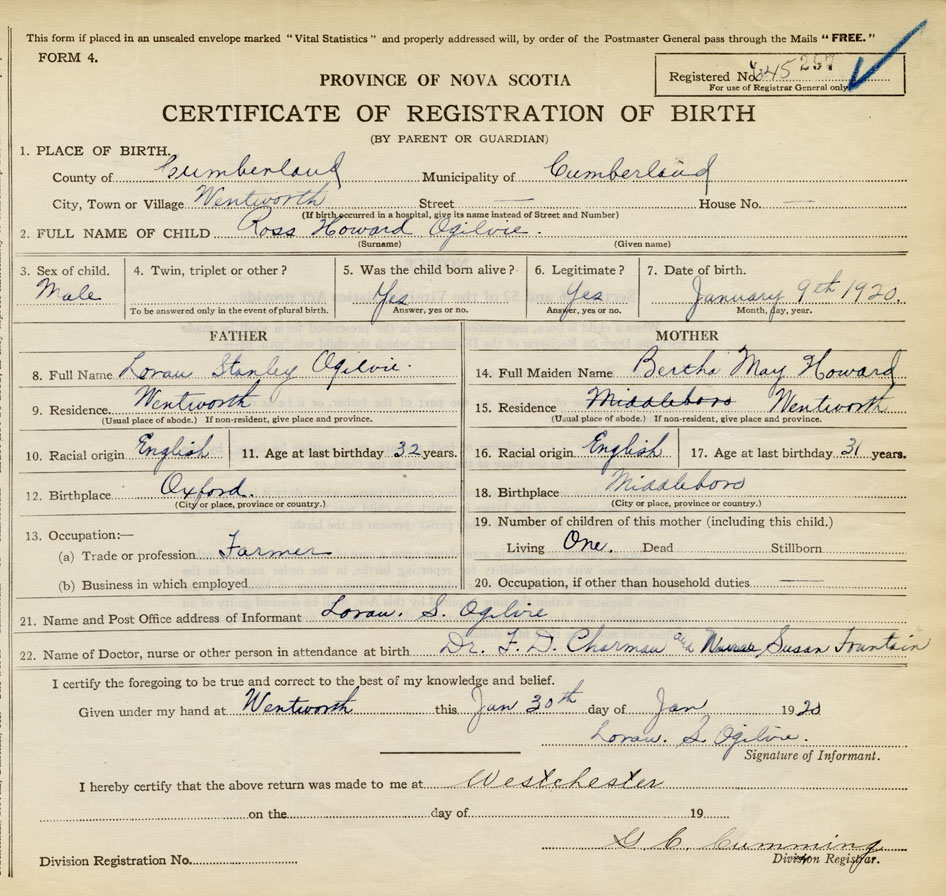 This form if placed in an unsealed envelope marked "Vital Statistics" and properly addressed will, by order of the Postmaster General pass through the Mails "FREE."
FORM 4.
PROVINCE OF NOVA SCOTIA
Registered No. 645 257
For use of Registrar General only
CERTIFICATE OF REGISTRATION OF BIRTH
(BY PARENT OR GUARDIAN)
1. PLACE OF BIRTH.
County of Cumberland Municipality of Cumberland
City, Town or Village Wentworth Street — House No. —
(If birth occurred in a hospital, give its name instead of Street and Number)
2. FULL NAME OF CHILD Ross Howard Ogilvie.
(Surname) (Given name)
3. Sex of child. 4. Twin, triplet or other? 5. Was the child born alive? 6. Legitimate? 7. Date of birth.
Male Yes Yes January 9th 1920.
To be answered only in the event of plural birth. Answer, yes or no. Answer, yes or no. Month, day, year.
FATHER MOTHER
8. Full Name Loran Stanley Ogilvie. 14. Full Maiden Name Bertha May Howard
9. Residence. Wentworth 15. Residence Middleboro Wentworth
(Usual place of abode.) If non-resident, give place and province. (Usual place of abode.) If non-resident, give place and province.
10. Racial origin English 11. Age at last birthday 32 years. 16. Racial origin English 17. Age at last birthday 31 years.
12. Birthplace Oxford. 18. Birthplace Middleboro
(City or place, province or country.) (City or place, province or country.)
13. Occupation:— 19. Number of children of this mother (including this child.)
(a) Trade or profession Farmer Living One. Dead Stillborn
(b) Business in which employed 20. Occupation, if other than household duties —
21. Name and Post Office address of Informant Loran. S. Ogilvie
22. Name of Doctor, nurse or other person in attendance at birth Dr. F. D. Charman and Nurse Susan Fountain
I certify the foregoing to be true and correct to the best of my knowledge and belief.
Given under my hand at Wentworth this Jan 30th day of Jan 1920
Loran. S. Ogilvie.
Signature of Informant.
I hereby certify that the above return was made to me at Westchester
on the day of 19
G. C. Cumming
Division Registration No. Division Registrar.